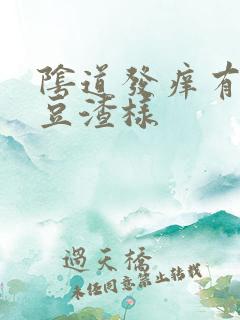 陰道發痒有
豆渣樣
過天橋
未经同意禁止转载